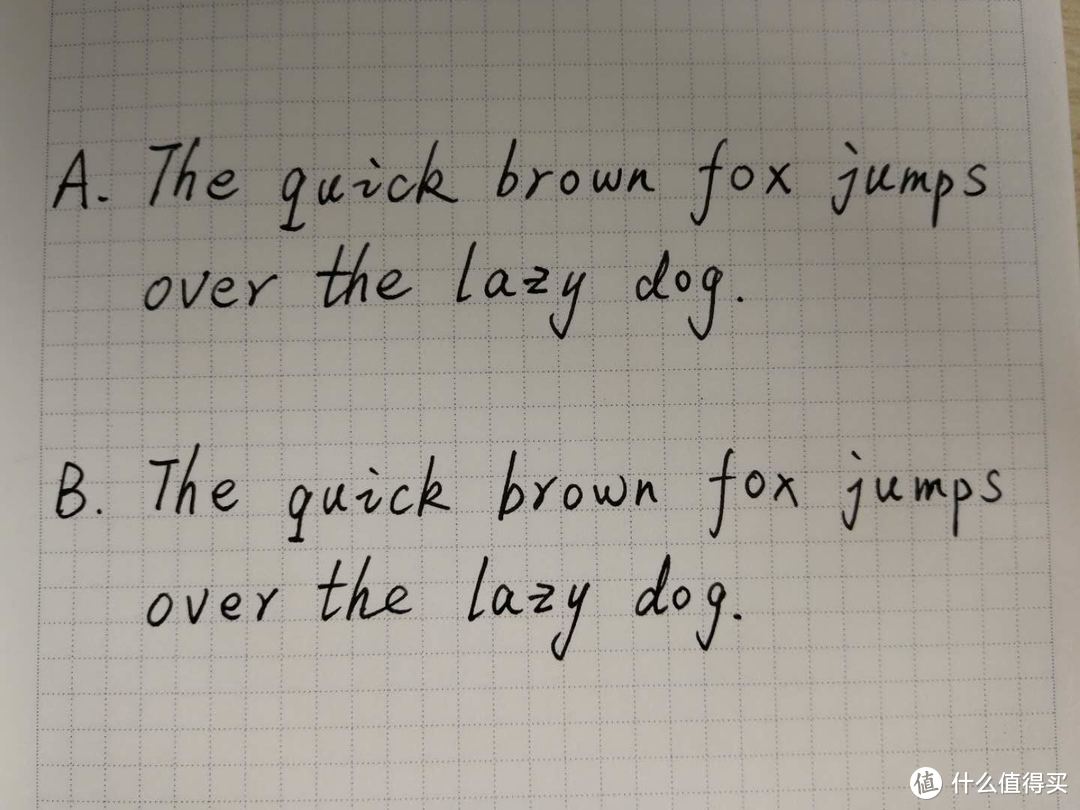 A. The quick brown fox jumps
over the lazy dog.
B. The quick brown fox jumps
over the lazy dog.
值 什么值得买